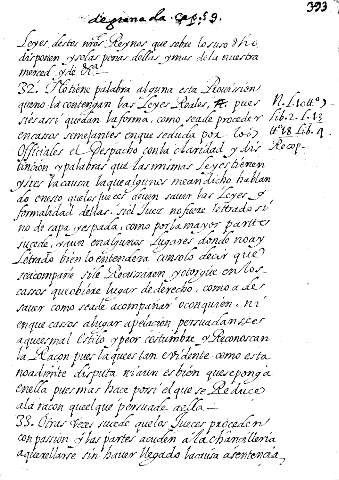 de granada. Cap. 59.
393
Leyes destos nros Reynos que sobre lo suso dho
disponen y so las penas dellas y mas de la nuestra
merced y de
32. No tiene palabra alguna esta Provission
que no la contengan las Leyes Reales, pues
si es assi quedan la forma, como se a de proceder
en casos semejantes en que se duda por los
Officiales el Despacho con la claridad y dis
tincion y palabras que las mismas Leyes tienen
y es la causa, la que algunos me an dicho hablan
do en esto que los jueces deuen sauer las Leyes y
formalidad dellas, si el Juez no fuere letrado si
no de capa y espada, como por la mayor partte
sucede, y aun en algunos Lugares donde no ay
Letrado bien lo entendera con solo decir que
se acompañe si le Recussaren y otorgue en los
cassos que obiere lugar de derecho, como a de
sauer como se a de acompañar o con quien, ni
en que cassos a lugar apelacion persuadanse es
aqueste mal Estilo y peor costumbre y Reconoscan
la Raçon pues la questan evidente como esta
no admite disputa ni aun es bien que se ponga
en ella pues mas hace por si el que se Reduce
a la raçon que el que persuade a ella.
33. Otras veces sucede que los Jueces proceden
con passion y las partes acuden a la chancilleria
a querellarse sin hauer llegado la causa a sentencia,
N. L. 10 ttº 7
Lib. 2. L. 13
ttº 18 Lib. 4
Recop.